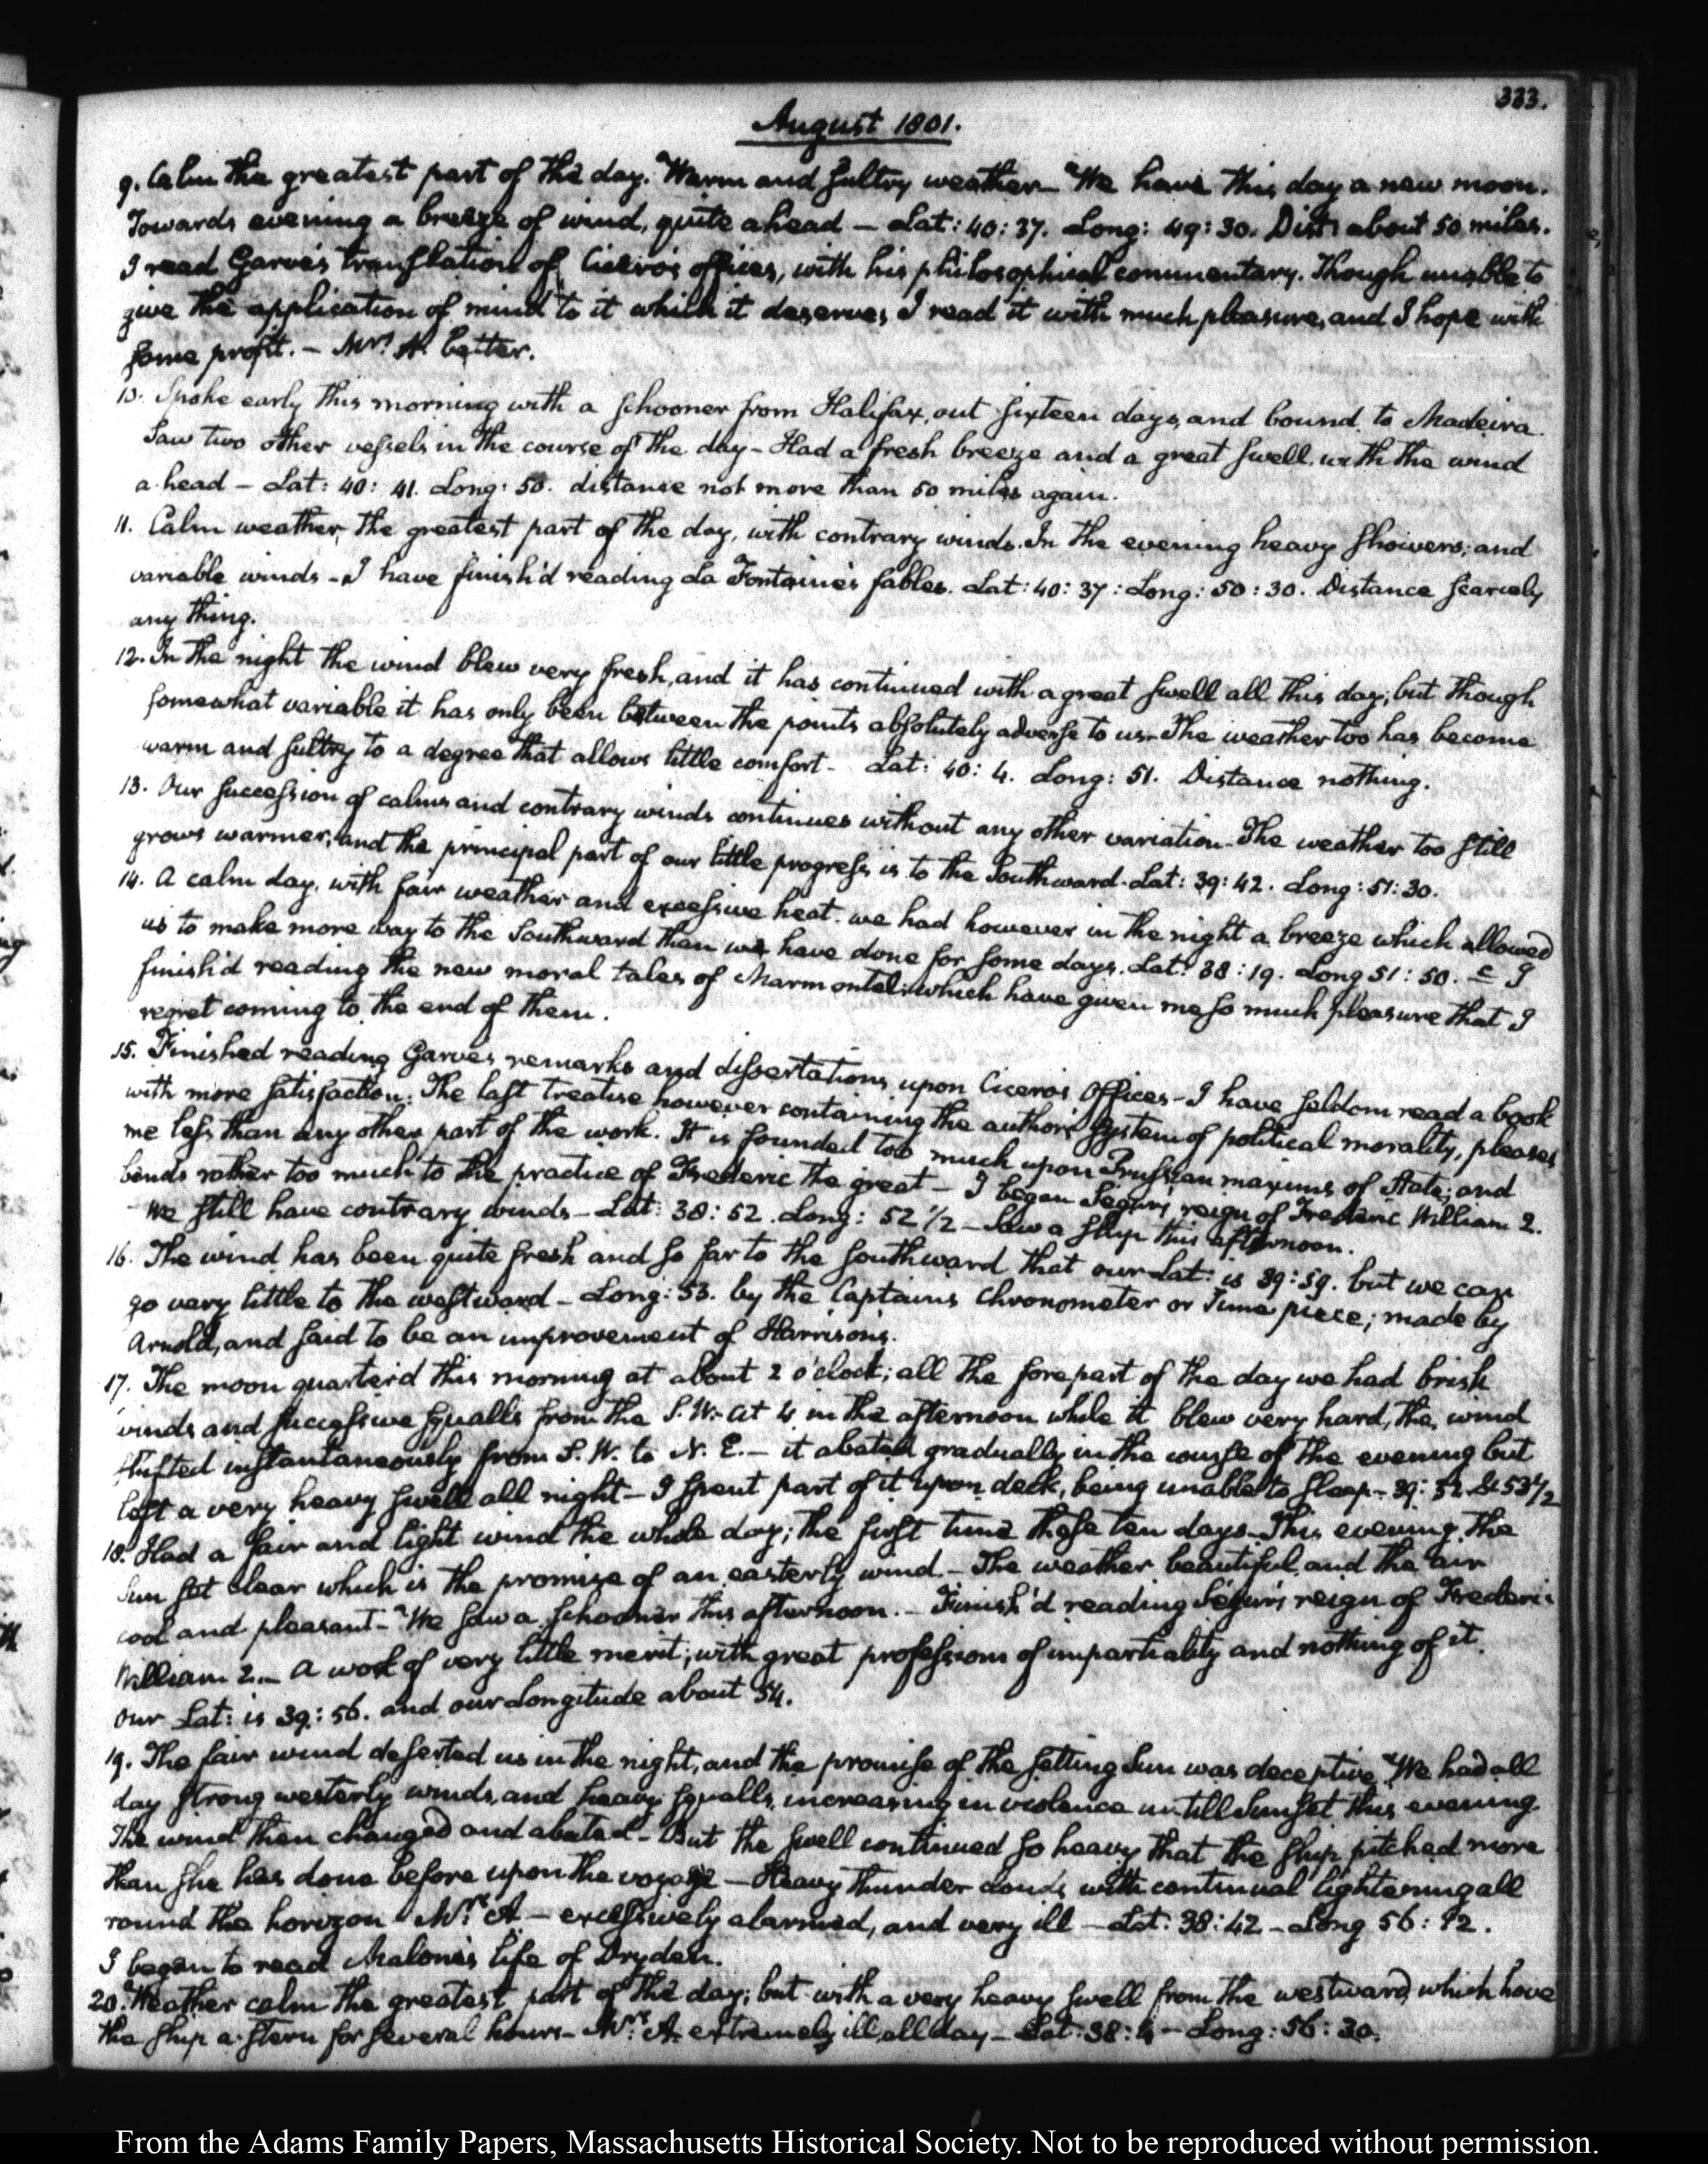 333.
August 1801.
9. Calm the greatest part of the day. Warm and sultry weather — We have this day a new moon.
Towards evening a breeze of wind, quite ahead — Lat: 40: 37. Long: 49: 30. Dist: about 50 miles.
I read Garve's translation of Cicero's offices, with his philosophical commentary. Though unable to
give the application of mind to it which it deserves, I read it with much pleasure, and I hope with
some profit. — Mrs. A. better.
10. Spoke early this morning with a schooner from Halifax, out sixteen days, and bound to Madeira.
Saw two other vessels in the course of the day — Had a fresh breeze and a great swell, with the wind
a head — Lat: 40: 41. Long: 50. distance not more than 50 miles again.
11. Calm weather, the greatest part of the day, with contrary winds. In the evening heavy showers; and
variable winds — I have finish'd reading La Fontaine's fables. Lat: 40: 37: Long: 50: 30. Distance scarcely
any thing.
12. In the night the wind blew very fresh, and it has continued with a great swell all this day; but though
somewhat variable it has only been between the points absolutely adverse to us — The weather too has become
warm and sultry to a degree that allows little comfort — Lat: 40: 4. Long: 51. Distance nothing.
13. Our succession of calms and contrary winds continues without any other variation — The weather too still
grows warmer; and the principal part of our little progress is to the Southward. Lat: 39: 42. Long: 51: 30.
14. A calm day, with fair weather and excessive heat. we had however in the night a breeze which allowed
us to make more way to the Southward than we have done for some days. Lat: 38: 19. Long 51: 50. — I
finish'd reading the new moral tales of Marmontel: which have given me so much pleasure that I
regret coming to the end of them.
15. Finished reading Garve's remarks and dissertations upon Cicero's Offices — I have seldom read a book
with more satisfaction: The last treatise however containing the author's system of political morality, pleases
me less than any other part of the work. It is founded too much upon Prussian maxims of State; and
bends rather too much to the practice of Frederic the great — I began Ségur's reign of Frederic William 2.
We still have contrary winds — Lat: 38: 52. Long: 52 1/2 — Saw a ship this afternoon.
16. The wind has been quite fresh and so far to the southward that our Lat: is 39: 59. but we can
go very little to the westward — Long: 53. by the Captain's Chronometer or Time piece; made by
Arnold, and said to be an improvement of Harrison's.
17. The moon quarter'd this morning at about 2 o'clock; all the forepart of the day we had brisk
winds and successive squalls from the S.W. — At 4 in the afternoon while it blew very hard, the wind
shifted instantaneously from S.W. to N.E. — it abated gradually in the course of the evening but
left a very heavy swell all night — I spent part of it upon deck, being unable to sleep — 39: 32. & 53 1/2
18. Had a fair and light wind the whole day; the first time these ten days — This evening the
sun set clear which is the promise of an easterly wind — The weather beautiful and the air
cool and pleasant — We saw a schooner this afternoon. — Finish'd reading Ségur's reign of Frederic
William 2. — A work of very little merit; with great professions of impartiality and nothing of it.
Our Lat: is 39: 56. and our Longitude about 54.
19. The fair wind deserted us in the night, and the promise of the setting Sun was deceptive. We had all
day strong westerly winds, and heavy squalls, increasing in violence untill Sunset this evening.
The wind then changed and abated — But the swell continued so heavy that the ship pitched more
than she has done before upon the voyage — Heavy thunder clouds with continual lightening all
round the horizon Mrs. A — excessively alarmed, and very ill — Lat: 38: 42 — Long 56: 12.
I began to read Malone's life of Dryden.
20. Weather calm the greatest part of the day; but with a very heavy swell from the westward, which hove
the ship a stern for several hours — Mrs. A. extremely ill, all day — Lat: 38: 4 — Long: 56: 30.
From the Adams Family Papers, Massachusetts Historical Society. Not to be reproduced without permission.